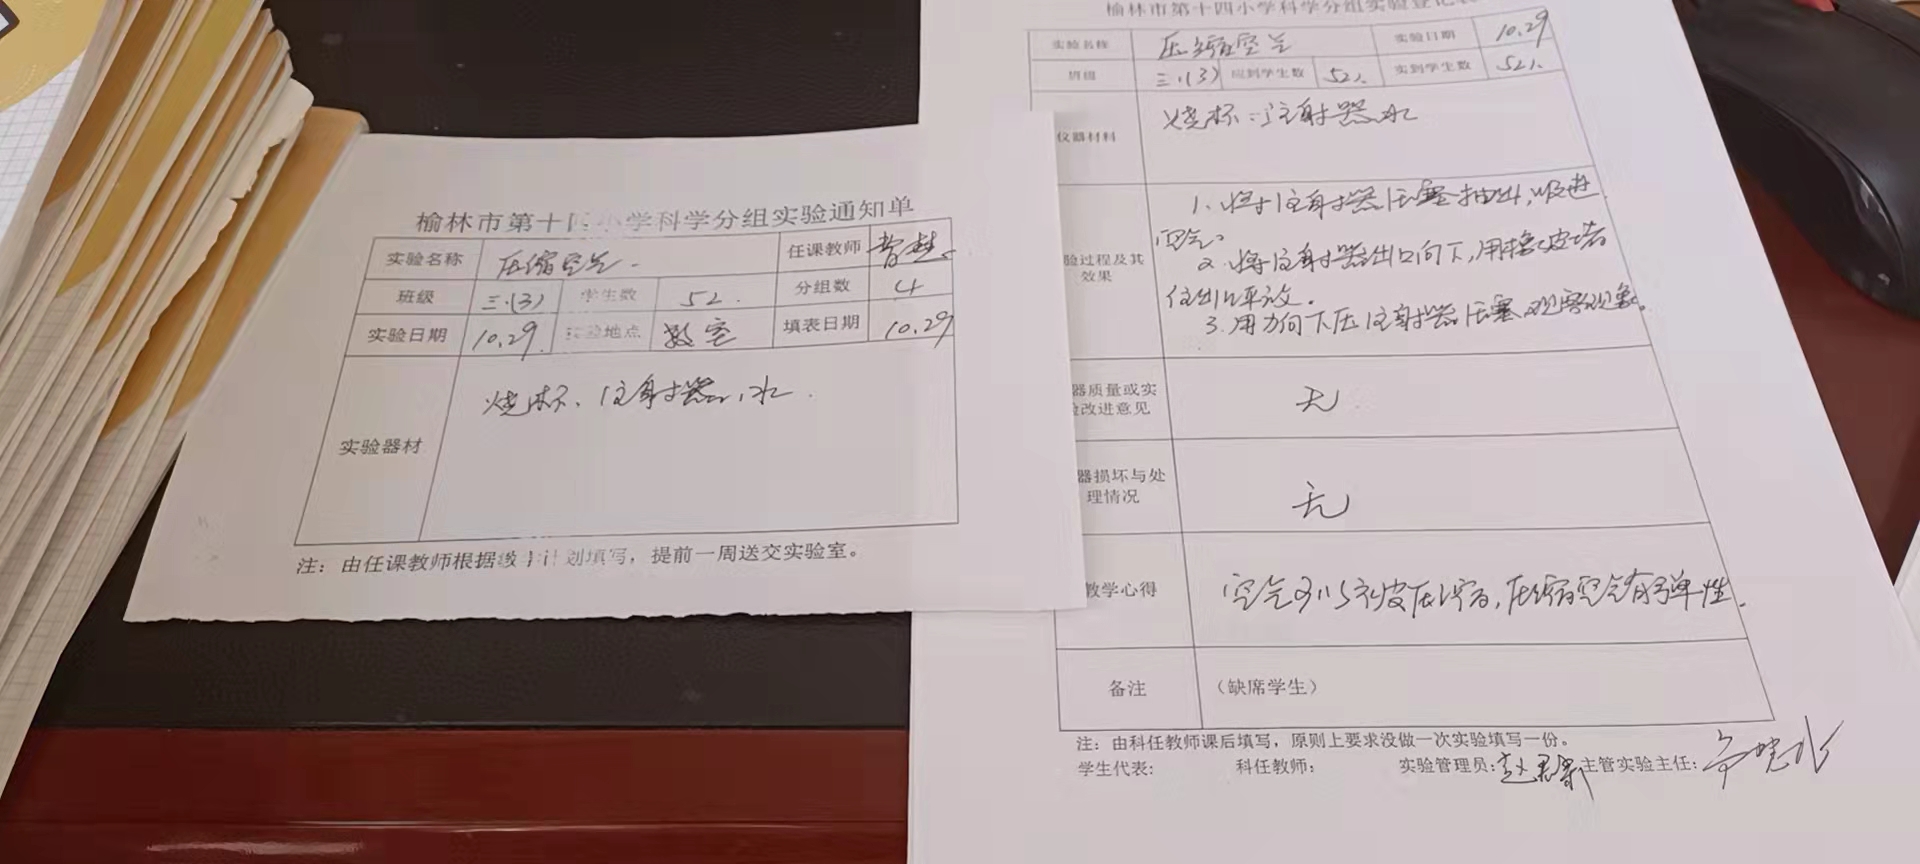 榆林市第十四小学科学分组实验通知单
实验名称 压缩空气. 任课教师
班级 三.(3) 学生数 52. 分组数 4
实验日期 10.29. 实验地点 教室 填表日期 10.29
实验器材 烧杯、注射器、水.
注：由任课教师根据教学计划填写，提前一周送交实验室。
榆林市第十四小学科学分组实验登记表
实验名称 压缩空气 实验日期 10.29
班级 三.(3) 应到学生数 52人 实到学生数 52人
仪器材料 烧杯 注射器 水
验过程及其
效果
1、将注射器活塞抽出，吸进
空气。
2. 将注射器出口向下，用橡皮堵
住出口平放.
3. 用力向下压注射器活塞 观察现象。
器质量或实
验改进意见
无
器损坏与处
理情况
无
教学心得 空气可以被压缩，压缩空气有弹性.
备注 （缺席学生）
注：由科任教师课后填写，原则上要求没做一次实验填写一份。
学生代表： 科任教师： 实验管理员： 主管实验主任：